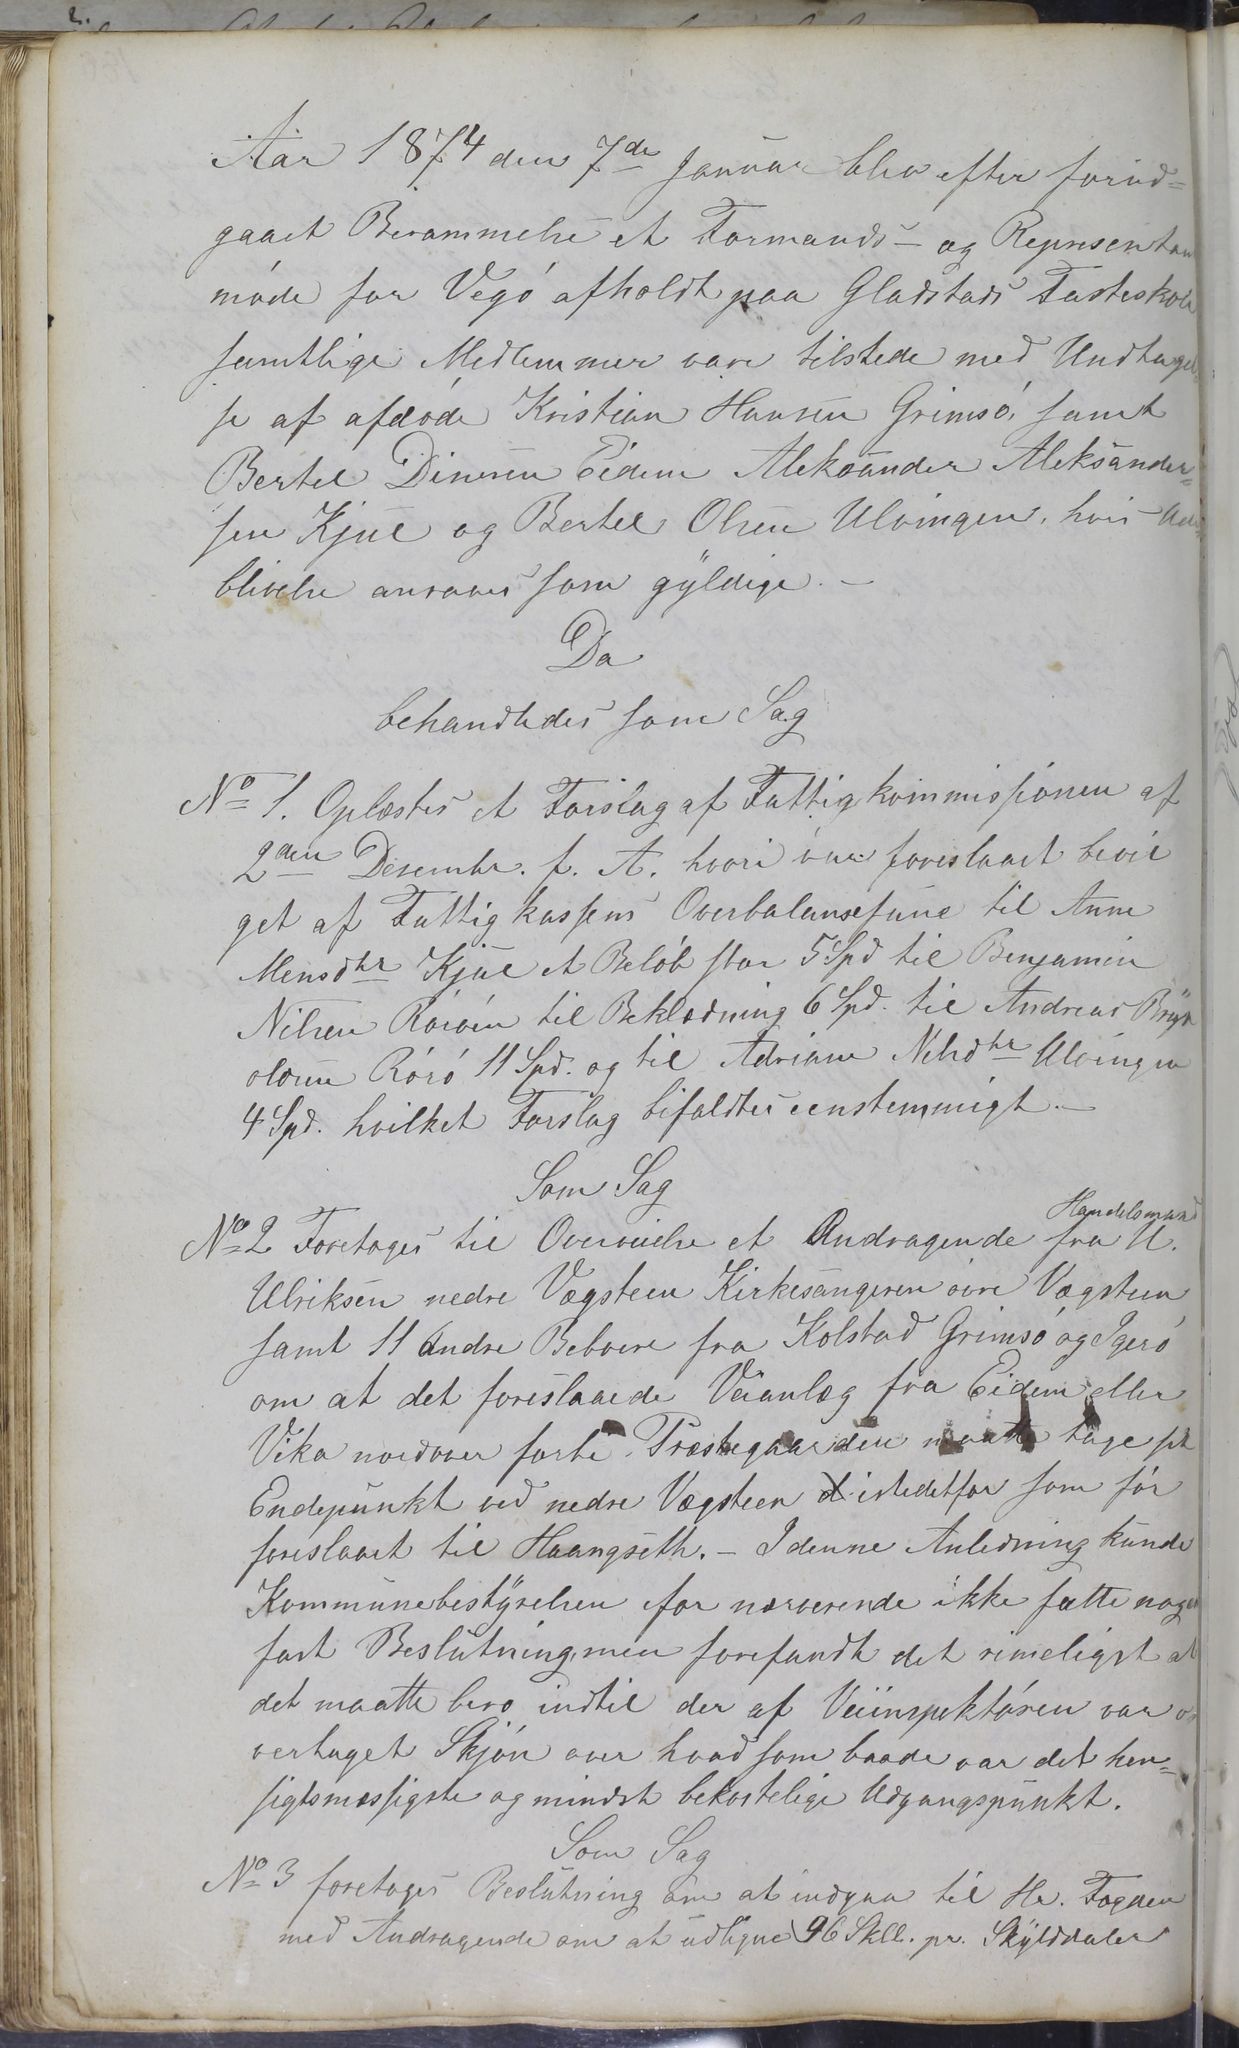 Aar 1874 den 7de Januar blev efter forud=
gaaet Berammelse et Formands- og Represen tan
möde for Vegö afholdt paa Gladstads Fasteskole
samtlige Medlemmer vare tilstede med Undtagel
se af afdøde Kristian Hansen Grimsö, samt
Bertel Dinesen Eidem Aleksander Aleksander=
sen Kjul og Bertel Olsen Ulvingen, hvis Ude
blivelse ansaaes som gyldige. -
Da
behandledes som Sag
No 1. Oplæstes et Forslag af Fattigkommissionen af
2den Desembr. f. A. hvori var foreslaaet bevil
get af Fattigkassens Overbalansefune til Anne
Mensdtr Kjul et Beløb stor 5 Spd til Benjamin
Nilsen Röröen til Beklædning 6 Spd. til Andreas Bryn
oldsen Rörö 11 Spd. og til Adriane Nilsdtr Ulvingen
4 Spd. hvilket Forslag bifaldtes eenstemmigt. -
Som Sag
Handelsmand
No 2 Foretages til Overveielse et Andragende fra U.
Ulriksen nedre Vægsteen Kirkesangeren övre Vægsteen
samt 11 andre Beboere fra Kolstad Grimsö og Igerö
om at det foreslaaede Veianlæg fra Eidem eller
Vika nordover forbi Præstegaarden maatte tage sit
Endepunkt ved nedre Vægsteen istedetfor som för
foreslaaet til Haangseth. - I denne Anledning kunde
Kommunebestyrelsen for nærverende ikke fatte nogen
fast Beslutning, men forefandt det rimeligst at
det maatte bero indtil der af Veiinspektören var o
vertaget Skjön over hvad som baade var det hen=
sigtsmæssigste og mindst bekostelige Udgangspunkt.
Som Sag
No 3 foretages Beslutning om at indgaa til Hr. Fogden
med Andragende om at udligne 96 Skll. pr. Skylddaler